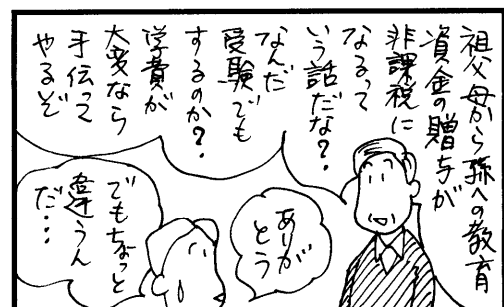 祖父母から孫への教育
資金の贈与が
非課税に
なるって
いう話だな？
なんだ
受験でも
するのか？
学費が
大変なら
手伝って
やるぞ
ありが
とう
でもちょっと
違うん
だ・・・